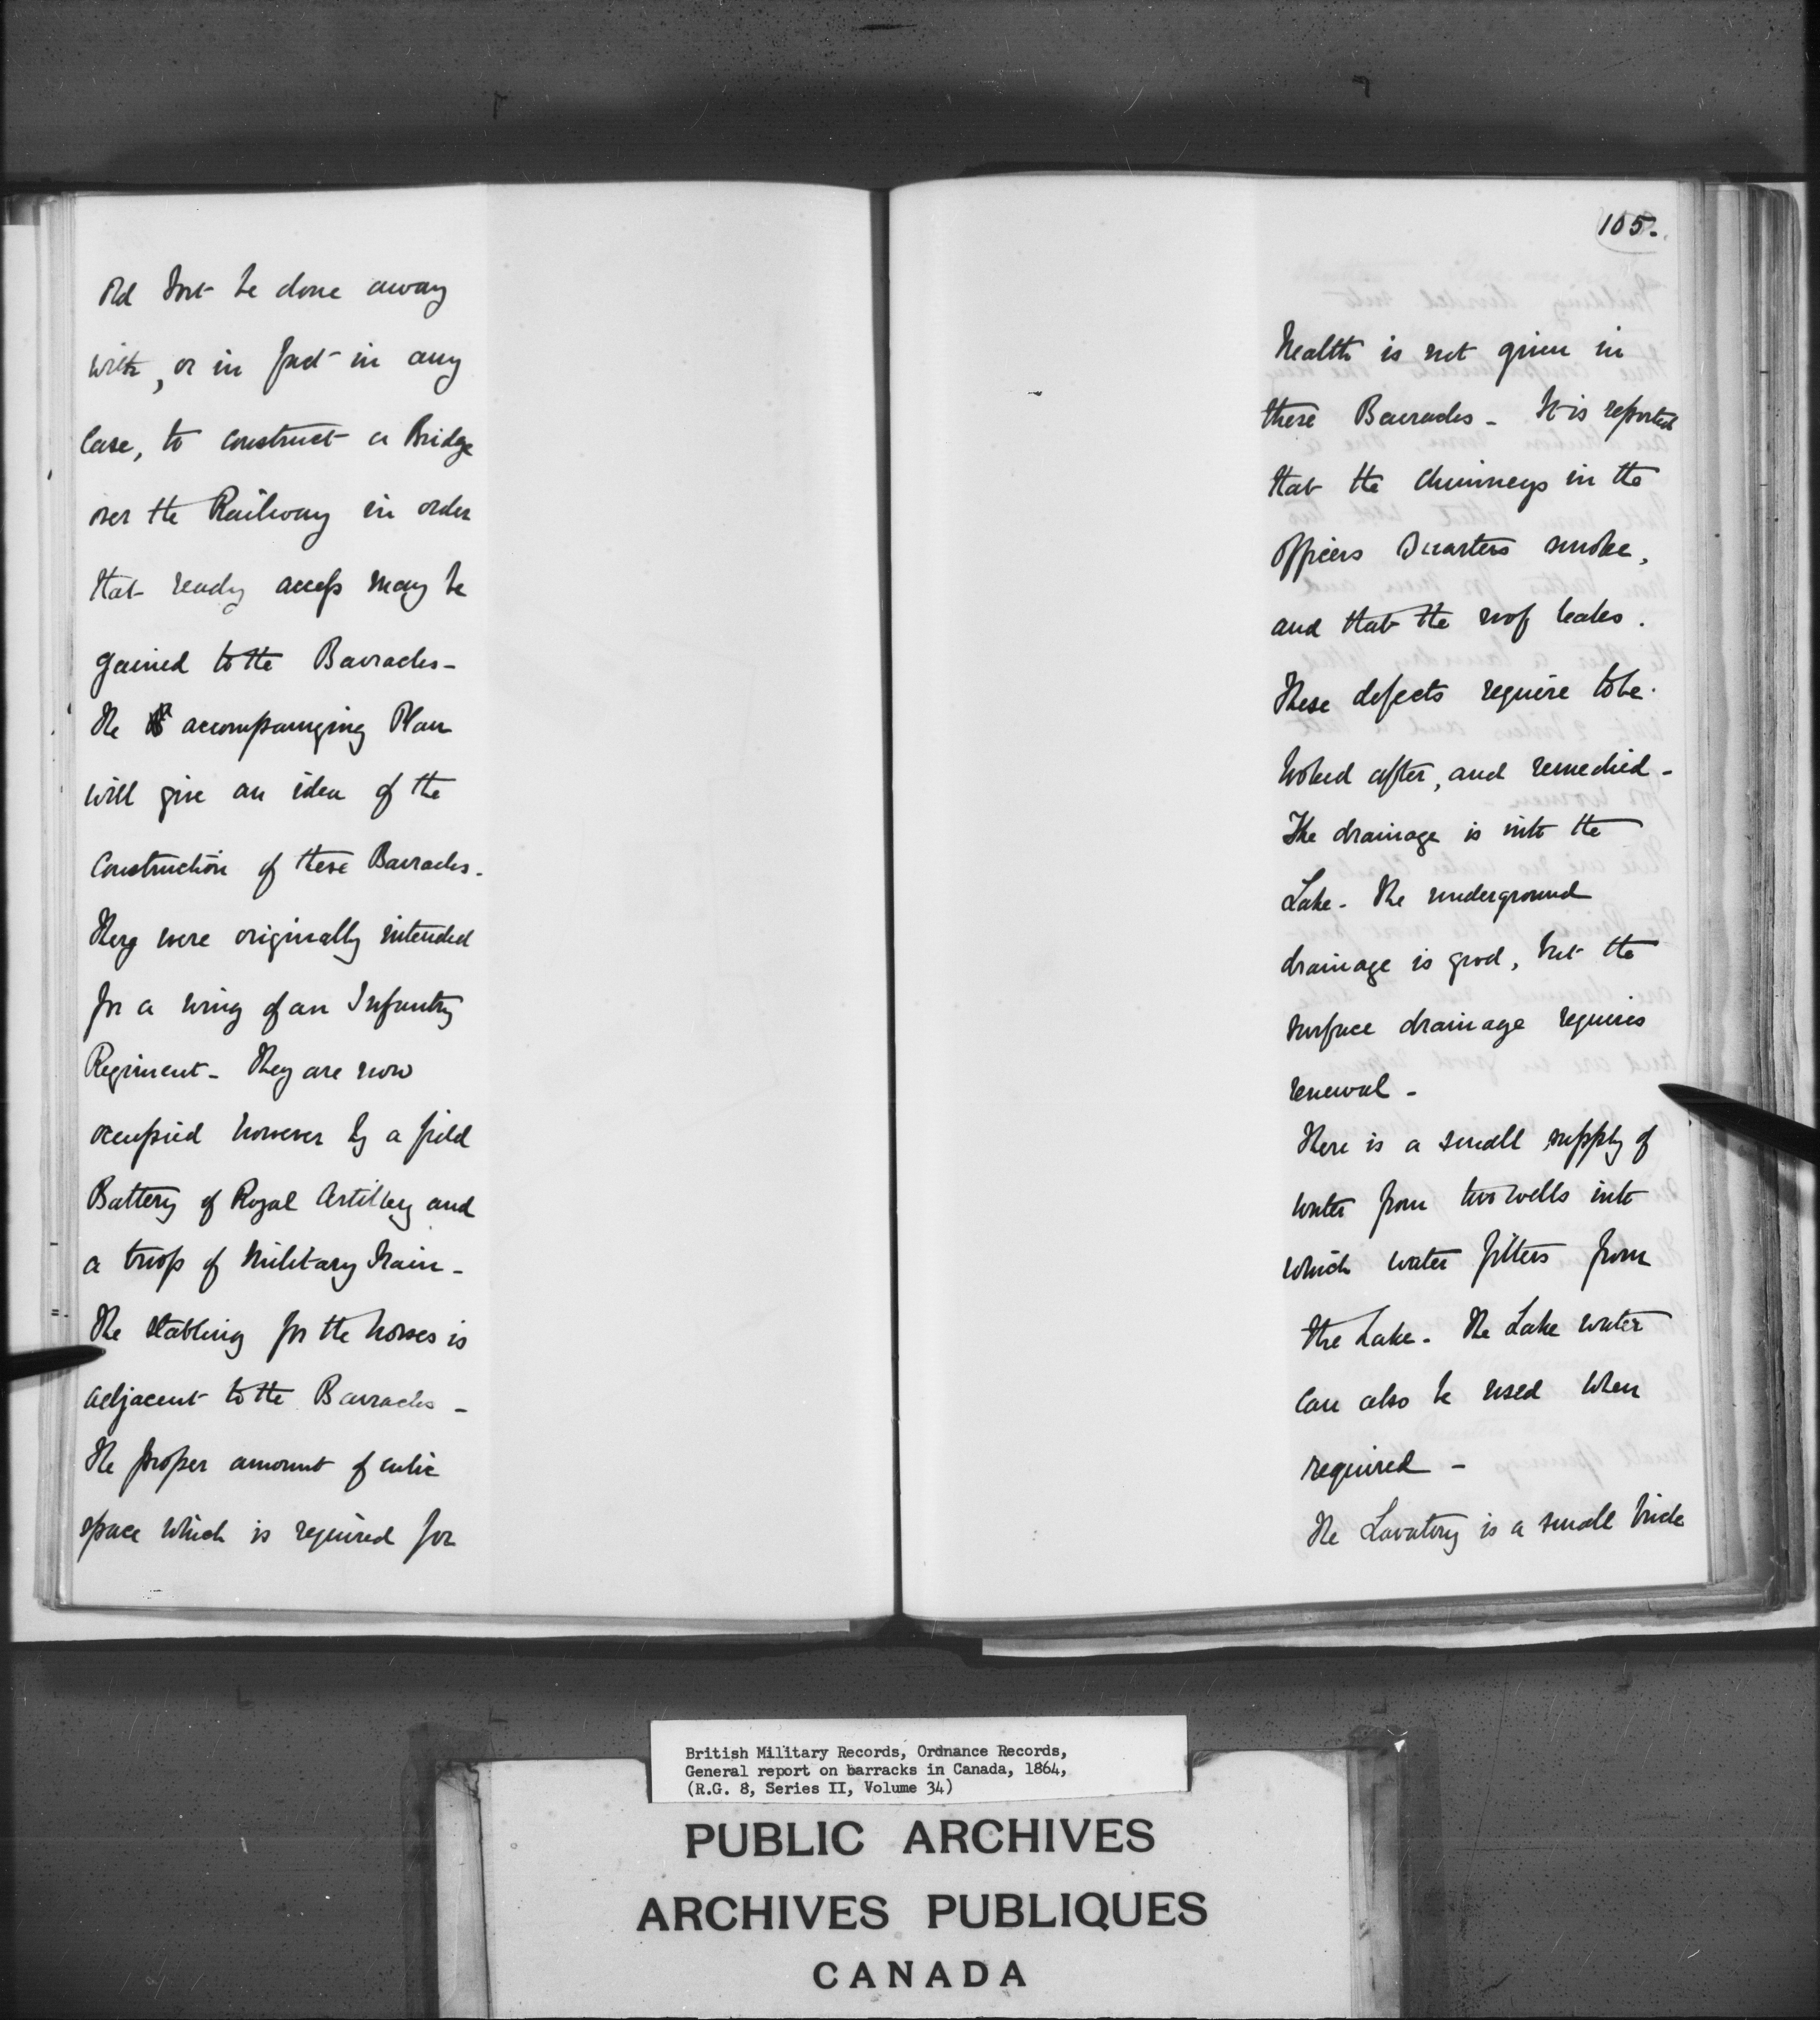 old Fort be done away
with, or in fact in any
case, to construct a Bridge
over the Railway in order
that ready access may be
gained to the Barracks -
The accompanying Plan
will give an idea of the
construction of these Barracks.
They were originally intended
for a wing of an Infantry
Regiment - They are now
occupied however by a field
Battery of Royal Artillery and
a troop of Military Train -
The stabling for the horses is
adjacent to the Barracks -
The proper amount of cubic
space which is required for
105.
health is not given in
these Barracks - It is reported
that the chimneys in the
Officers Quarters smoke,
and that the roof leaks.
These defects require to be
looked after, and remedied -
The drainage is into the
Lake - The underground
drainage is good, but the
surface drainage requires
renewal -
There is a small supply of
water from two wells into
which water filters from
the Lake - The Lake water
can also be used when
required -
The Lavatory is a small brick
British Military Records, Ordnance Records,
General report on barracks in Canada, 1864,
(R.G. 8, Series II, Volume 34)
PUBLIC ARCHIVES
ARCHIVES PUBLIQUES
CANADA